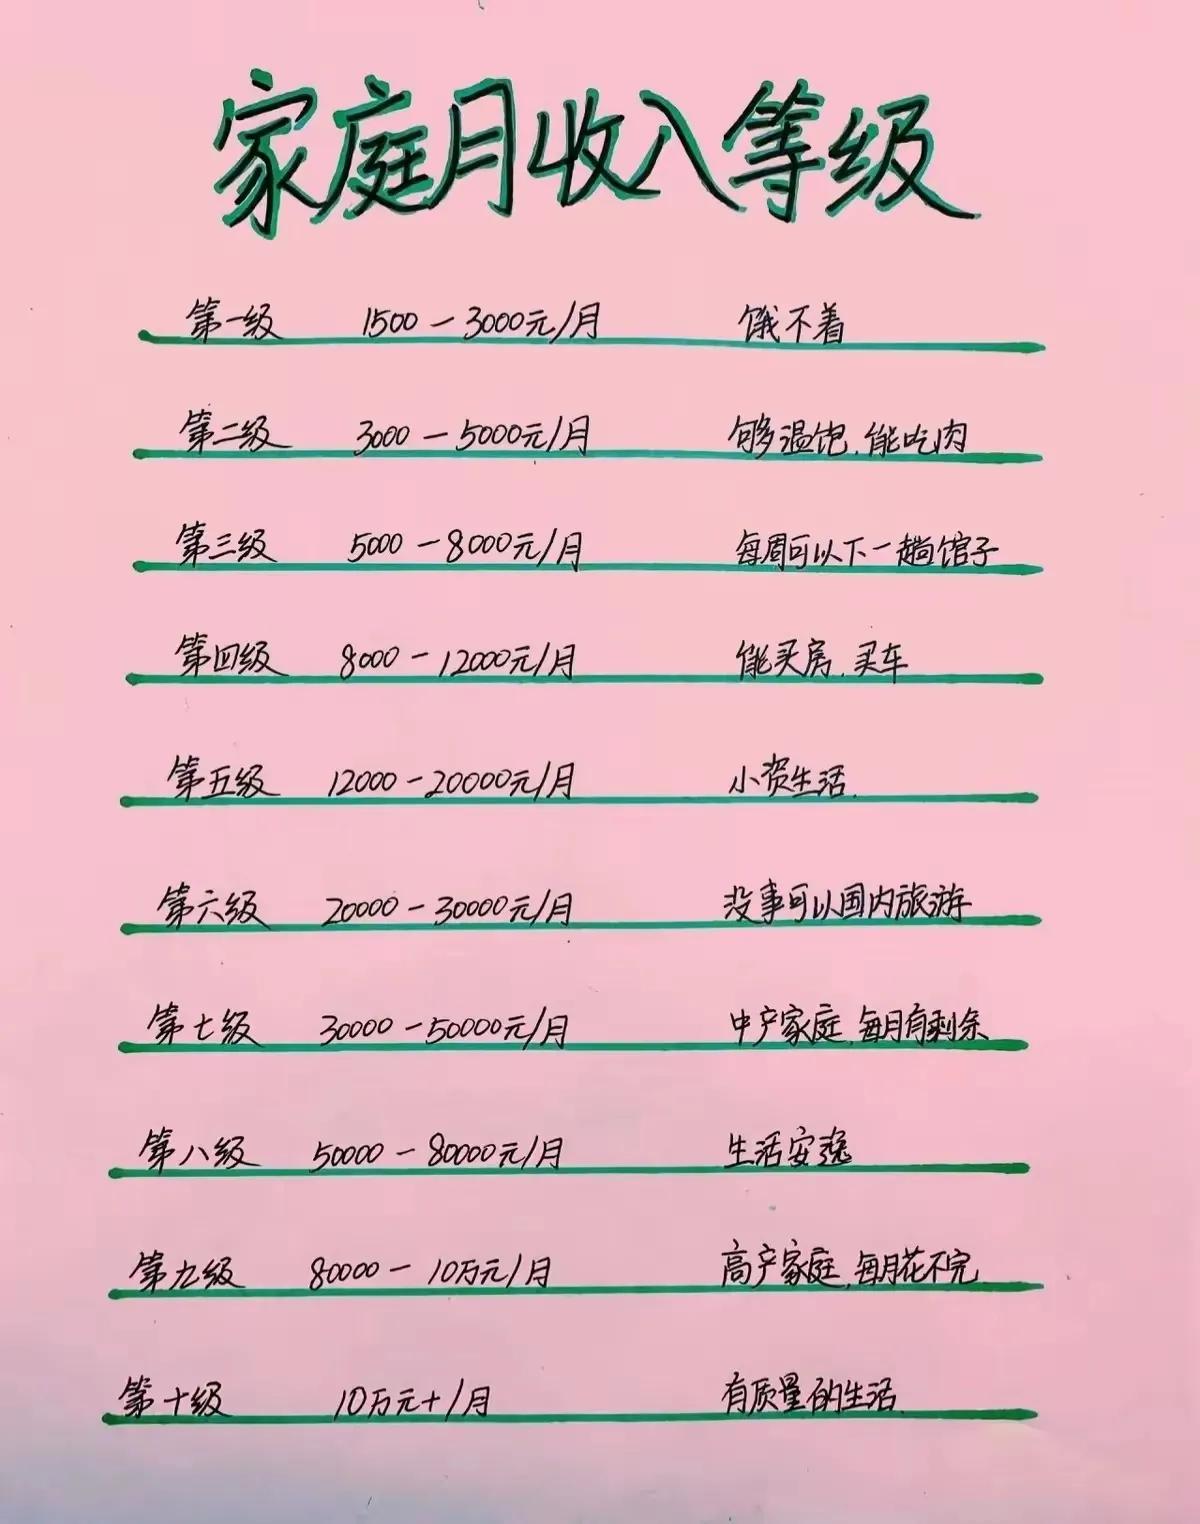 家庭月收入等级
第一级 1500-3000元/月 饿不着
第二级 3000-5000元/月 够温饱.能吃肉
第三级 5000-8000元/月 每周可以下一趟馆子
第四级 8000-12000元/月 能买房.买车
第五级 12000-20000元/月 小资生活.
第六级 20000-30000元/月 没事可以国内旅游
第七级 30000-50000元/月 中产家庭.每月有剩余
第八级 50000-80000元/月 生活安逸
第九级 80000-10万元/月 高产家庭.每月花不完
第十级 10万元+/月 有质量的生活.